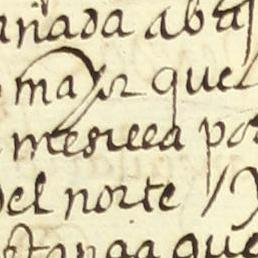 añada aba
mayor quel
mesilla por
del norte / y
stanga que